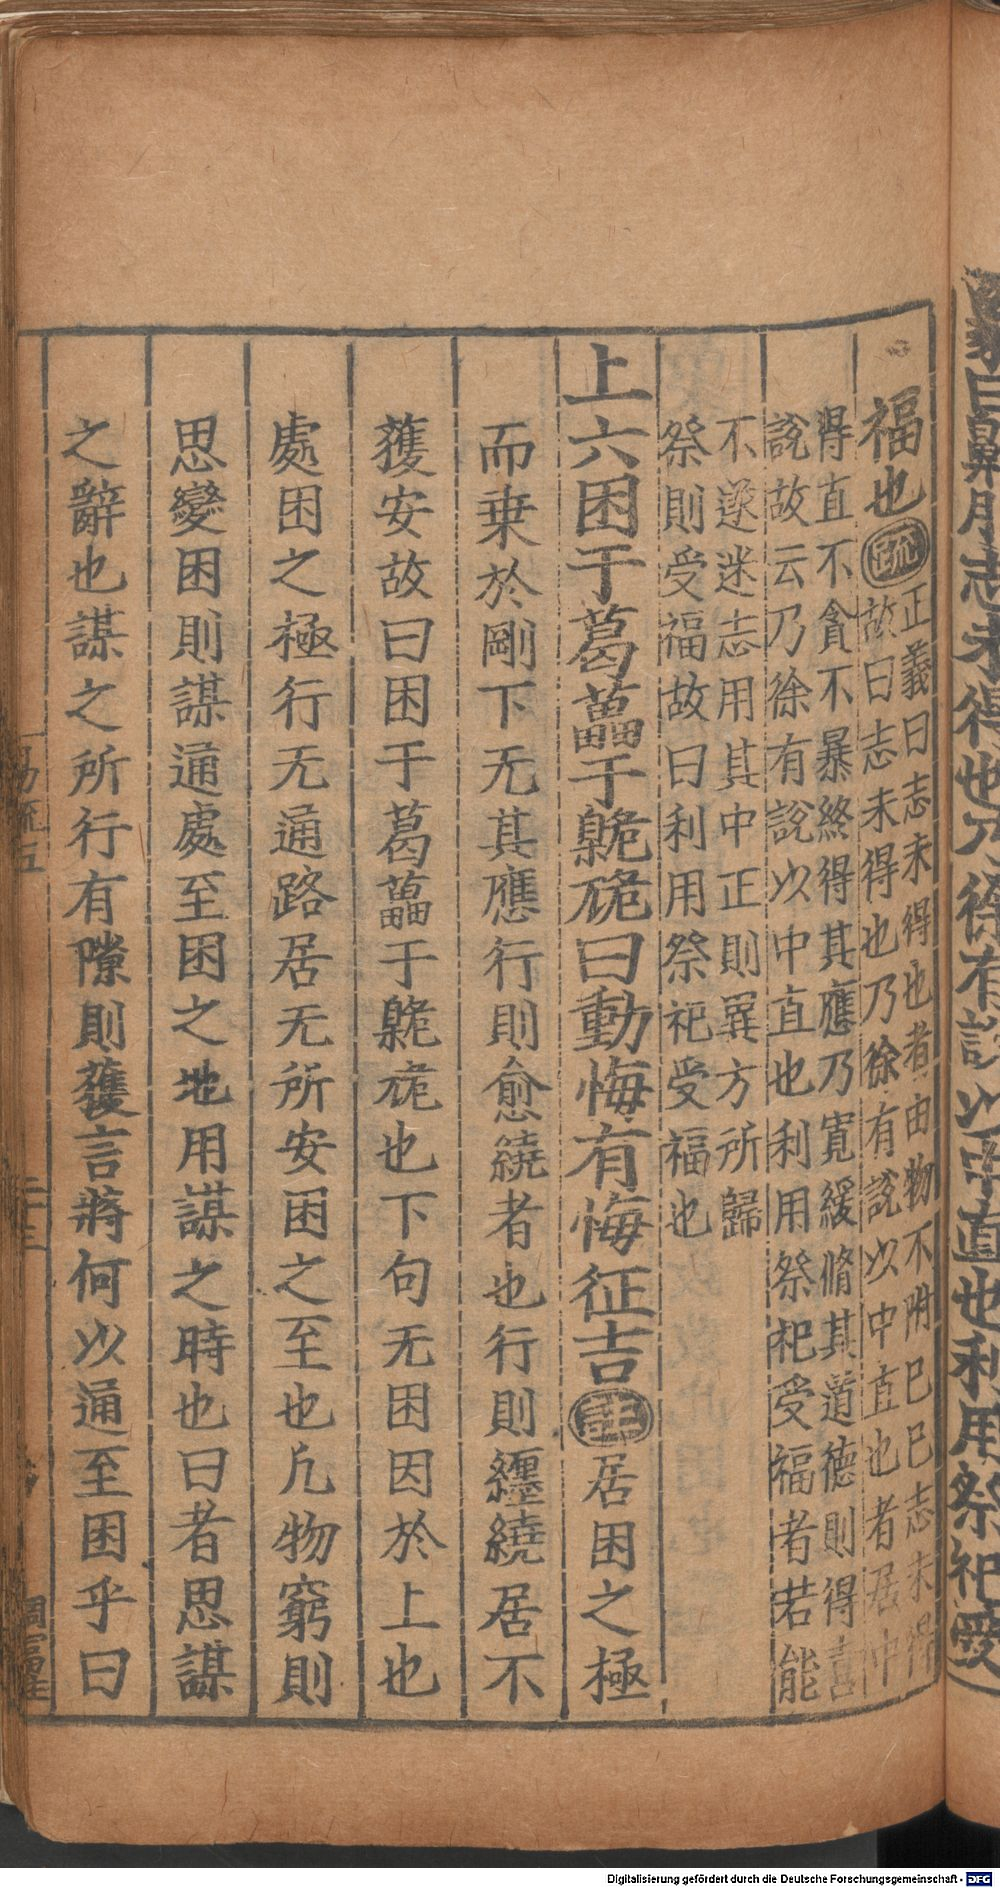 象曰劓刖志未得也乃徐有說以中直也利用祭祀受
福也疏正義曰志未得也者由物不附已已志未得
故曰志未得也乃徐有說以中直也者居中
得直不貪不暴終得其應乃寛緩脩其道德則得喜
說故云乃徐有說以中直也利用祭祀受福者若能
不遂迷志用其中正則異方所歸
祭則受福故曰利用祭祀受福也
上六困于葛藟于臲卼曰動悔有悔征吉註居困之極
而乗於剛下无其應行則愈繞者也行則纒繞居不
獲安故曰困于葛藟于臲卼也下句无困因於上也
處困之極行无通路居无所安困之至也凢物窮則
思變困則謀通處至困之地用謀之時也曰者思謀
之辭也謀之所行有隙則獲言將何以通至困乎曰
易疏五
二十三
Digitalisierung gefördert durch die Deutsche Forschungsgemeinschaft - DFG